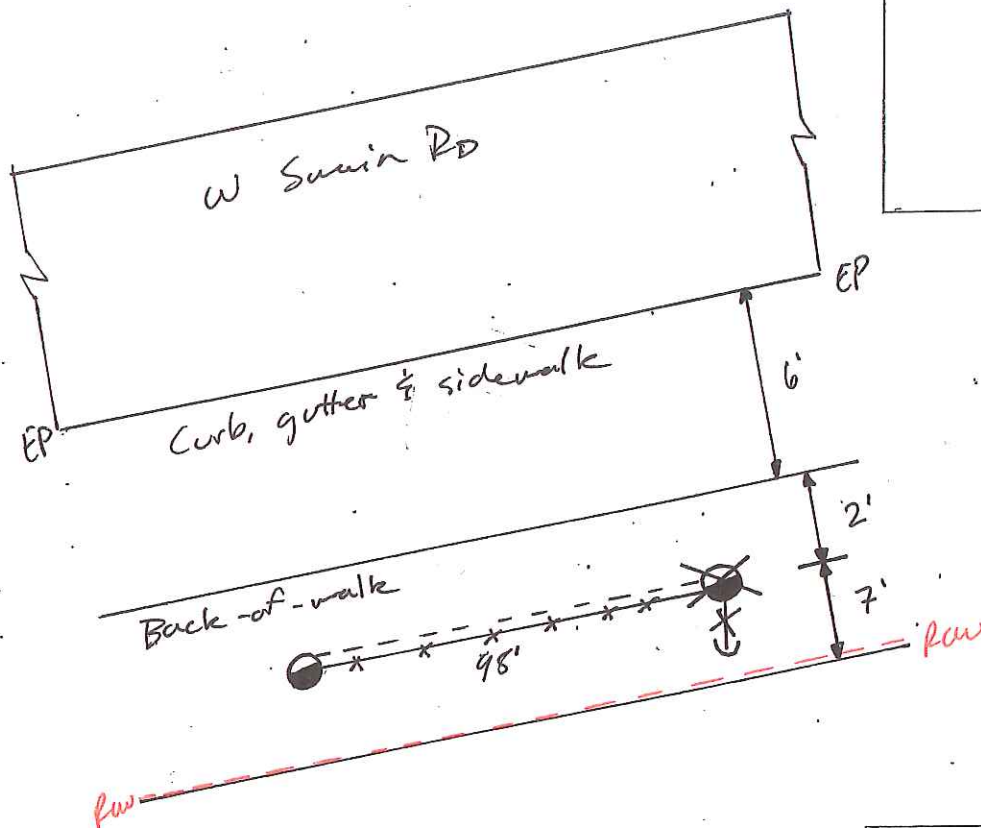 W Swain RD
EP
6'
Curb, gutter & sidewalk
EP
2'
Back-of-walk
7'
98'
Row
Row